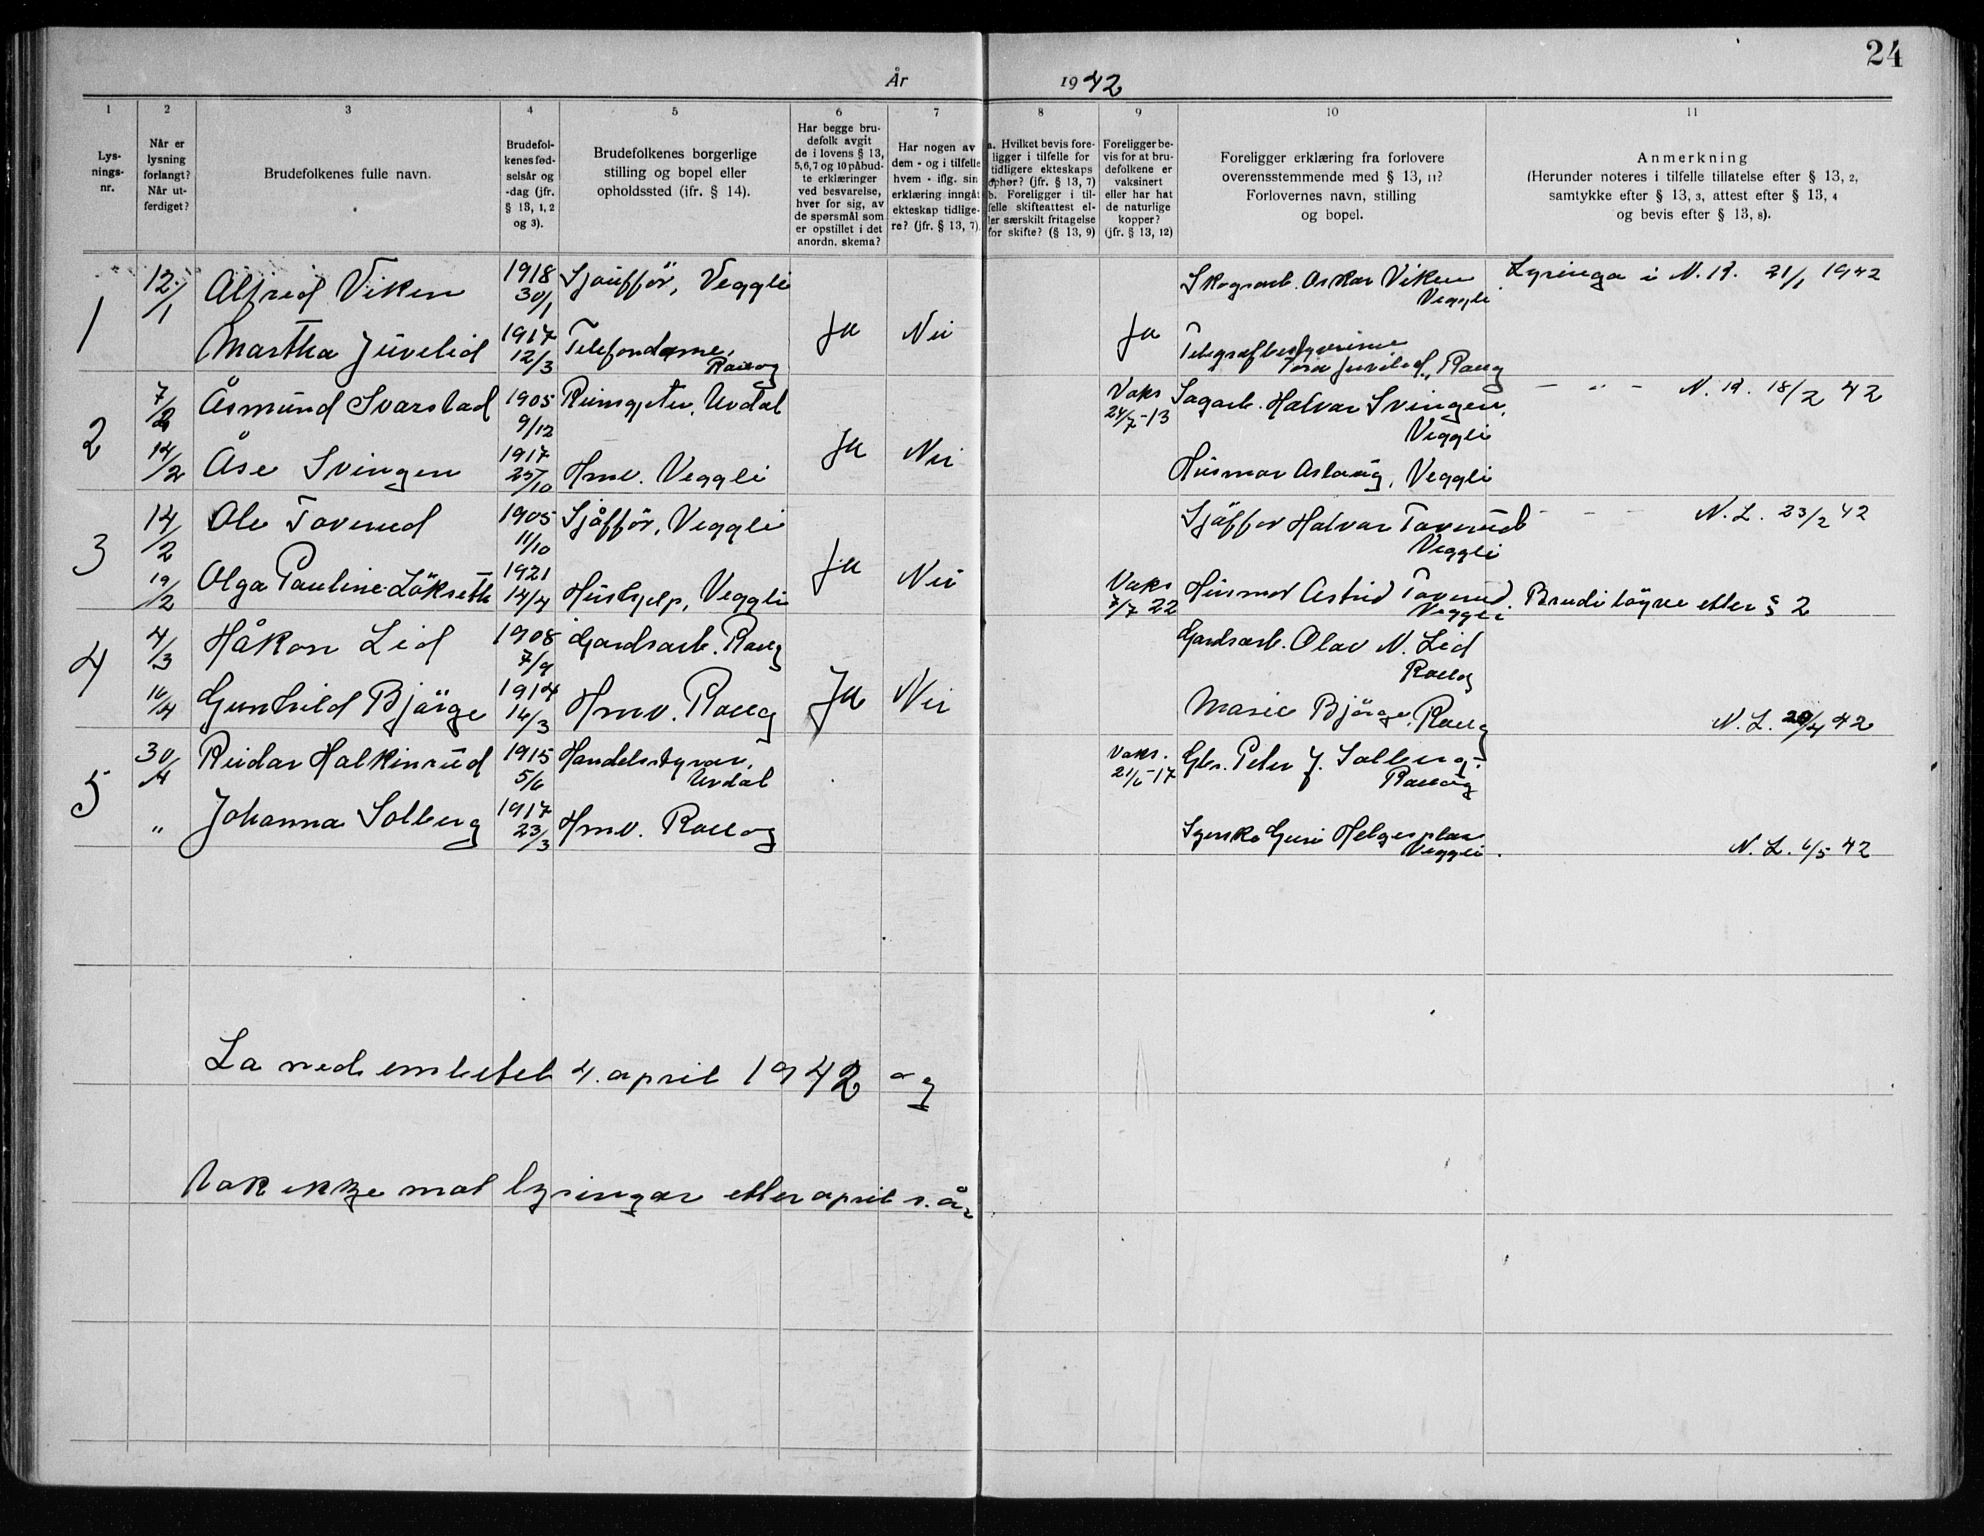 24
År 1942
1 2 3 4 5 6 7 8 9 10 11
Lys-
nings-
nr.
Når er
lysning
forlangt?
Når ut-
ferdiget?
Brudefolkenes fulle navn.
Brudefol-
kenes fød-
selsår og
-dag (jfr.
§ 13, 1, 2
og 3).
Brudefolkenes borgerlige
stilling og bopel eller
opholdssted (jfr. § 14).
Har begge bru-
defolk avgit
de i lovens § 13,
5,6,7 og 10 påbud-
te erklæringer
ved besvarelse,
hver for sig, av
de spørsmål som
er opstillet i det
anordn. skema?
Har nogen av
dem - og i tilfelle
hvem - iflg. sin
erklæring inngåt
ekteskap tidlige-
re? (jfr. § 13, 7).
a. Hvilket bevis fore-
ligger i tilfelle for
tidligere ekteskaps
ophør? (jfr. § 13, 7)
b. Foreligger i til-
felle skifteattest el-
ler særskilt fritagelse
for skifte? (§ 13, 9)
Foreligger be-
vis for at bru-
defolkene er
vaksinert
eller har hat
de naturlige
kopper?
(jfr. § 13, 12)
Foreligger erklæring fra forlovere
overensstemmende med § 13, 11?
Forlovernes navn, stilling
og bopel.
Anmerkning
(Herunder noteres i tilfelle tillatelse efter § 13, 2,
samtykke efter § 13, 3, attest efter § 13, 4
og bevis efter § 13, 8).
1 12/1 Alfred Viken 1918 30/1 Sjauffør, Veggli Skogsarb. Oskar Viken Veggli Lysinga i N.R. 21/1 1942
Martha Juvelid 1917 12/3 Telefondame, Rollag Ja Nei Ja Telegrafbestyrerinne Tora Juvelid, Rollag
2 7/2 Åsmund Svarstad 1905 9/12 Reinsgjeter, Uvdal Vaks 24/7-13 Sagarb. Halvar Svingen, Veggli — " — N.R. 18/2 42
14/2 Åse Svingen 1917 25/10 Hmv. Veggli Ja Nei Husmor Aslaug, Veggli
3 14/2 Ole Toverud 1905 11/10 Sjåffør, Veggli Sjåffør Halvar Toverud Veggli - - — N.L. 23/2 42
19/2 Olga Pauline Løkseth 1921 14/4 Hushjelp, Veggli Ja Nei Vaks 7/7 22 Husmor Astrid Toverud Veggli. Brudeløyve etter § 2
4 4/3 Håkon Lid 1908 7/9 Gardsarb. Rollag Gardsarb. Olav N. Lid Rollag
16/4 Gunhild Bjørge 1914 16/3 Hmv. Rollag Ja Nei Marie Bjørge, Rollag N.L. 20/4 42
5 30/4 Reidar Halkinrud 1915 5/6 Handelsstyrar, Uvdal Vaks. 21/6-17 Gbr. Peter J. Solberg. Rollag
" Johanna Solberg 1917 23/3 Hmv. Rollag Syerske Guri Helgesplass Veggli. N.L. 6/5 42
La ned embetet 4. april 1942 og
tok ikkje mot lysingar etter april s. å.